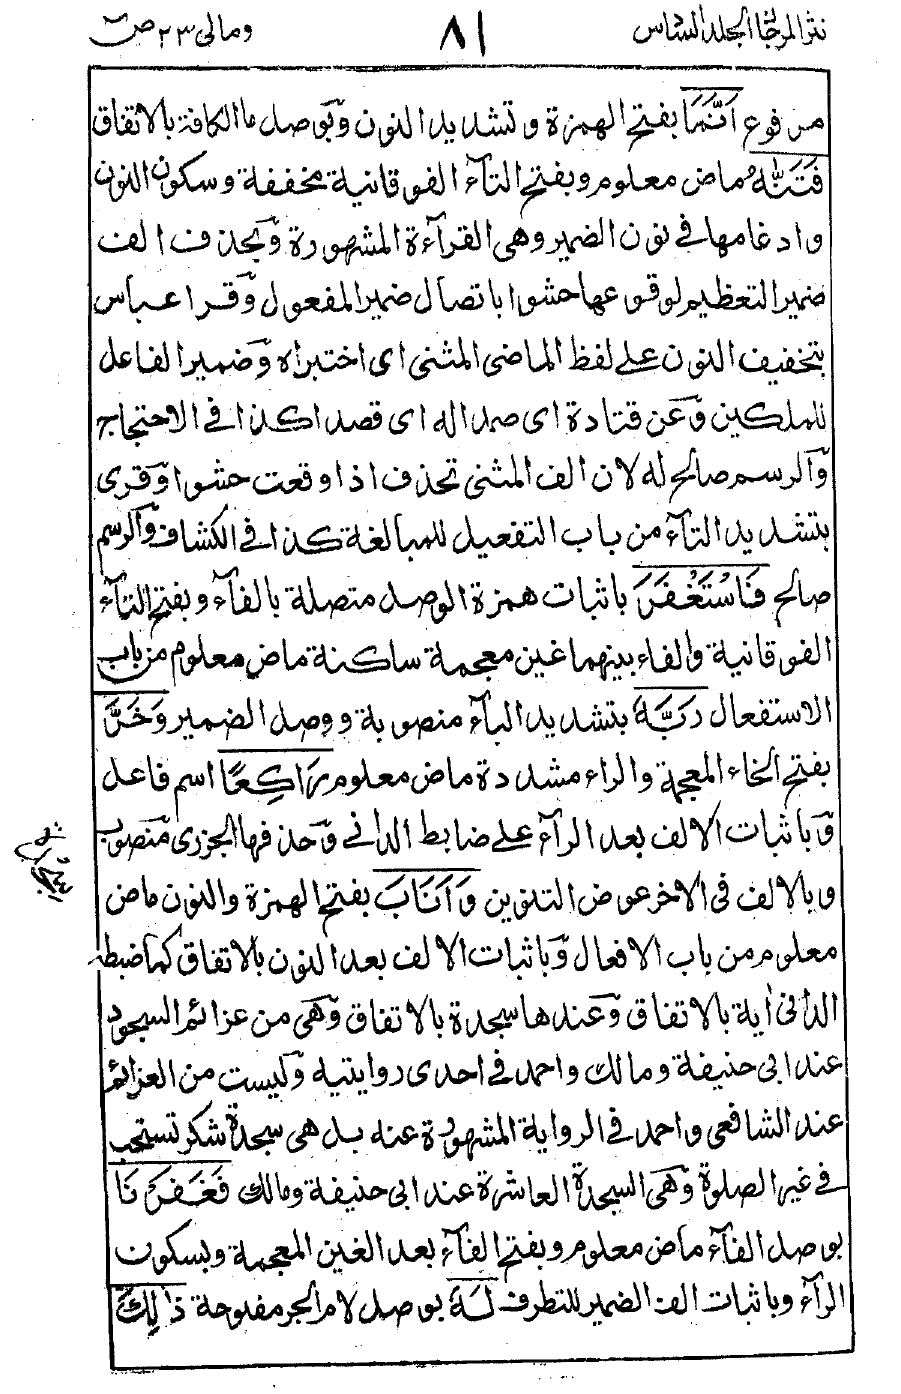 نثر المرجان الجلد السادس
٨١
ومالى ٢٣ ص
مرفوع اَنَّمَا بفتح الهمزة وتشديد النون وبوصل ما الكافة بالاتفاق
فَتَنّٰهُ ماض معلوم وبفتح التآء الفوقانية مخففة وسكون النون
وادغامها فى نون الضمير وهى القرآءة المشهورة وبحذف الف
ضمير التعظيم لوقوعها حشوا باتصال ضمير المفعول وقرا عباس
بتخفيف النون على لفظ الماضى المثنى اى اختبراه وضمير الفاعل
للملكين وعن قتادة اى صمدا له اى قصدا كذا فى الاحتجاج
والرسم صالح له لان الف المثنى تحذف اذا وقعت حشوا وقرى
بتشديد التآء من باب التفعيل للمبالغة كذا فى الكشاف والرسم
صالح فَاسْتَغْفَرَ باثبات همزة الوصل متصلة بالفآء وبفتح التآء
الفوقانية والفاء بينهما غين معجمة ساكنة ماض معلوم من باب
الاستفعال رَبَّهٗ بتشديد البآء منصوبة ووصل الضمير وَخَرَّ
بفتح الخاء المعجمة والراء مشددة ماض معلوم رَاكِعًا اسم فاعل
وباثبات الالف بعد الرآء على ضابط الدانى وحذفها الجزرى منصوب
وبالالف فى الاخر عوض التنوين وَاَنَابَ بفتح الهمزة والنون ماض
معلوم من باب الافعال وباثبات الالف بعد النون بالاتفاق كما ضبطه
الدانى اٰية بالاتفاق وعندها سجدة بالاتفاق وهى من عزائم السجود
عند ابى حنيفة ومالك واحمد فى احدى روايتيه وليست من العزائم
عند الشافعى واحمد فى الرواية المشهورة عنه بل هى سجدة شكر تستحب
فى غير الصلوة وهى السجدة العاشرة عند ابى حنيفة ومالك فَغَفَرْنَا
بوصل الفآء ماض معلوم وبفتح الفآء بعد الغين المعجمة وبسكون
الرآء وباثبات الف الضمير للتطرف لَهٗ بوصل لام الجر مفتوحة ذٰلِكَ